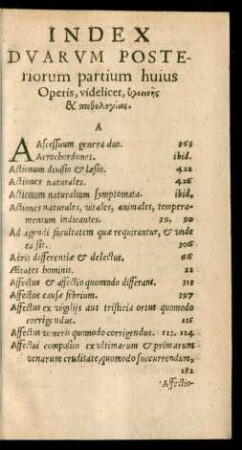 INDEX
DVARVM POSTE-
riorum partium huius
Operis, videlicet, ὑγιεινῆς
& παθολογίας.
A
Abscessuum genera duo. 265
Acrochordones. ibid.
Actionum diuisio & læsio. 422
Actiones naturales. 426
Actionum naturalium symptomata. ibid.
Actiones naturales, vitales, animales, tempera-
mentum indicantes. 29. 30
Ad agendi facultatem quæ requirantur, & vnde
ea sit. 306
Aëris differentiæ & delectus. 66
Ætates hominis. 22
Affectus & affectio quomodo differant. 318
Affectus causæ febrium. 297
Affectus ex vigilijs aut tristicia ortus quomodo
corrigendus. 125
Affectus veneris quomodo corrigendus. 123. 124.
Affectui composito ex vltimarum & primarum
venarum cruditate, quomodo succurrendum,
182
Affectio-